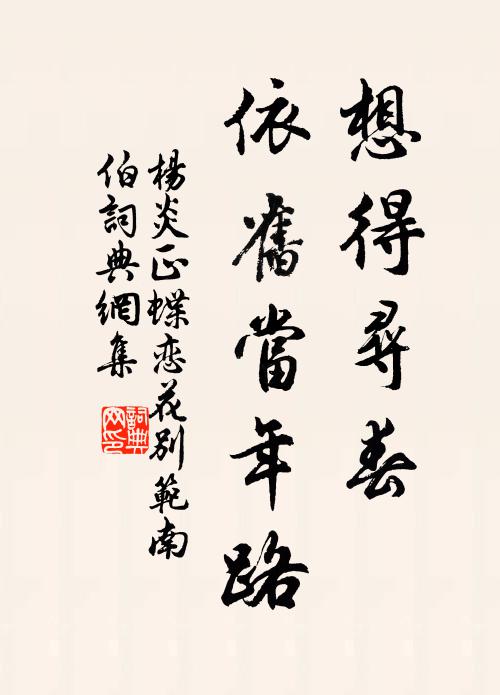 想得尋春
依舊當年路
楊炎正蝶恋花別範南
伯詞典網集
詞典
网印